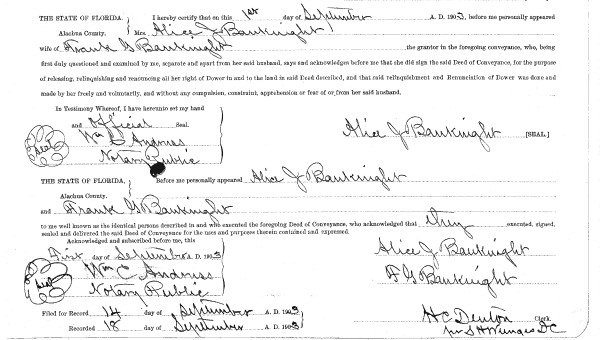 THE STATE OF FLORIDA, I hereby certify that on this 1st day of September A. D. 190 3, before me personally appeared
Alachua County. Mrs. Alice J Bauknight
wife of Frank G Bauknight the grantor in the foregoing conveyance, who, being
first duly questioned and examined by me, separate and apart from her said husband, says and acknowledges before me that she did sign the said Deed of Conveyance, for the purpose
of releasing, relinquishing and renouncing all her right of Dower in and to the land in said Deed described, and that said relinquishment and Renunciation of Dower was done and
made by her freely and voluntarily, and without any compulsion, constraint, apprehension or fear of or from her said husband.
In Testimony Whereof, I have hereunto set my hand
and Official Seal.
Wm C Andruss Alice J Bauknight [SEAL]
Seal Notary Public
THE STATE OF FLORIDA, Before me personally appeared Alice J Bauknight
Alachua County.
and Frank G Bauknight
to me well known as the identical persons described in and who executed the foregoing Deed of Conveyance, who acknowledged that they executed, signed,
sealed and delivered the said Deed of Conveyance for the uses and purposes therein contained and expressed.
Acknowledged and subscribed before me, this
first day of September A. D. 190 3 Alice J Bauknight
Seal Wm C Andruss F G Bauknight
Notary Public
Filed for Record 14 day of September A. D. 190 3 H C Denton Clerk.
Recorded 18 day of September A. D. 190 3 per S H Wienges DC